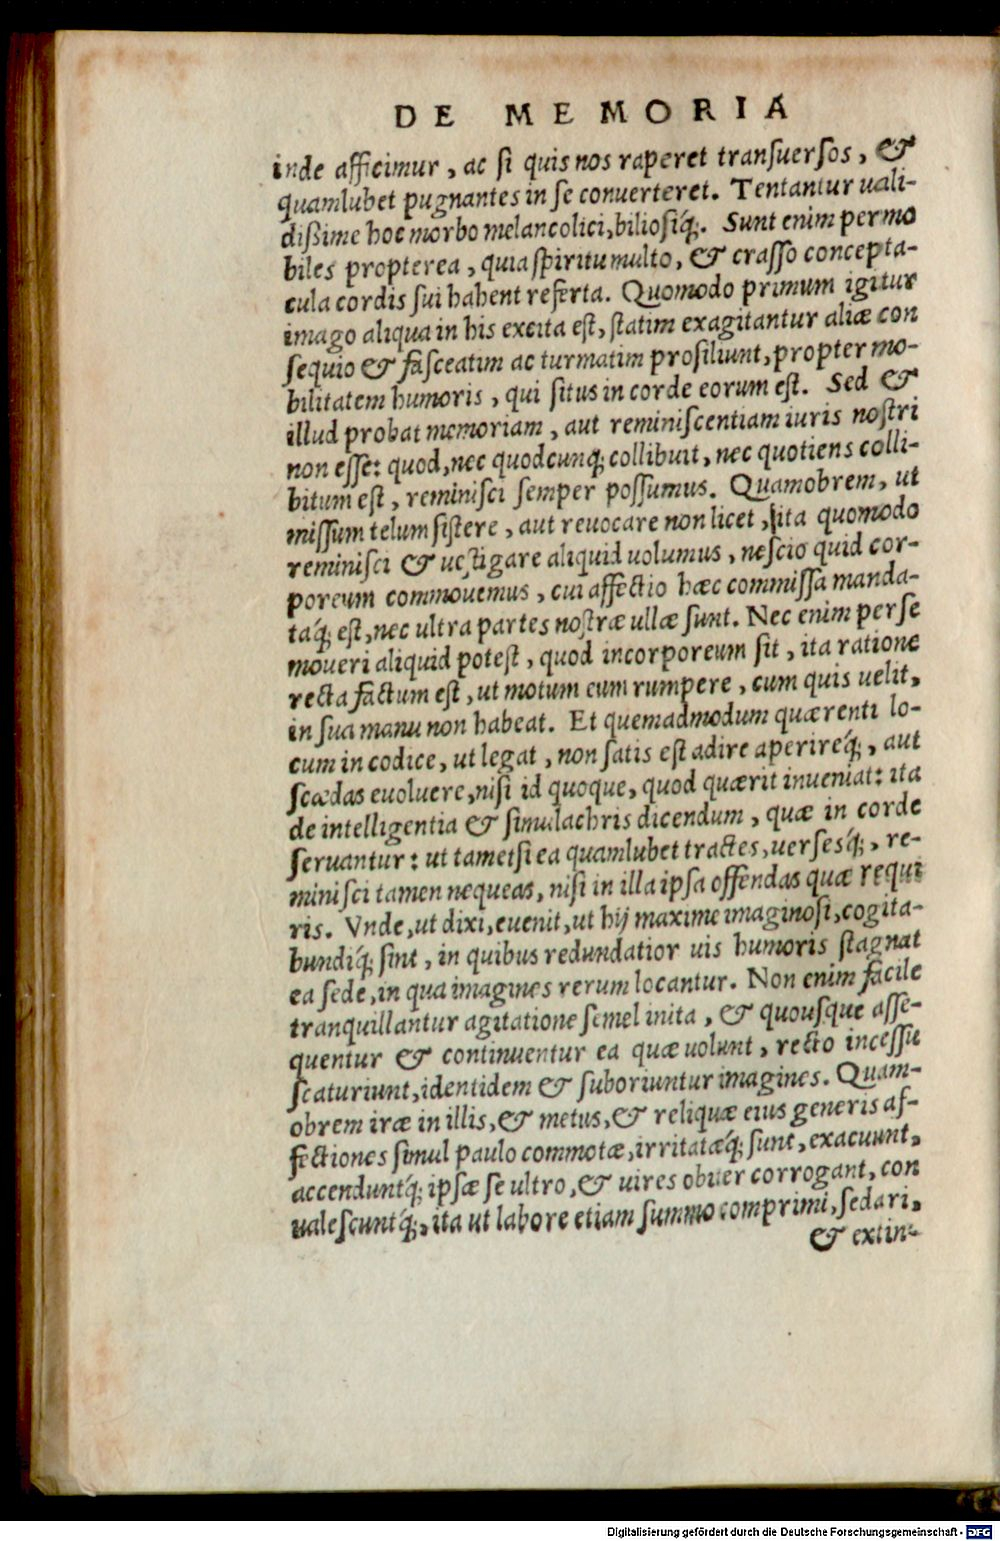 DE MEMORIA
inde afficimur, ac ſi quis nos raperet tranſuerſos, &
quamlubet pugnantes in ſe conuerteret. Tentantur uali-
dißime hoc morbo melancolici, bilioſiq́;. Sunt enim permo
biles propterea, quia ſpiritu multo, & craſſo concepta-
cula cordis ſui habent referta. Quomodo primum igitur
imago aliqua in his excita eſt, ſtatim exagitantur aliæ con
ſequio & faſceatim ac turmatim proſiliunt, propter mo-
bilitatem humoris, qui ſitus in corde eorum eſt. Sed &
illud probat memoriam, aut reminiſcentiam iuris noſtri
non eſſe: quod, nec quodcunq; collibuit, nec quotiens colli-
bitum eſt, reminiſci ſemper poſſumus. Quamobrem, ut
miſſum telum ſiſtere, aut reuocare non licet, ita quomodo
reminiſci & ueſtigare aliquid uolumus, neſcio quid cor-
poreum commouemus, cui affectio hæc commiſſa manda-
taq́; eſt, nec ultra partes noſtræ ullæ ſunt. Nec enim per ſe
moueri aliquid poteſt, quod incorporeum ſit, ita ratione
recta factum eſt, ut motum eum rumpere, cum quis uelit,
in ſua manu non habeat. Et quemadmodum quærenti lo-
cum in codice, ut legat, non ſatis eſt adire aperireq́;, aut
ſcædas euoluere, niſi id quoque, quod quærit inueniat: ita
de intelligentia & ſimulachris dicendum, quæ in corde
ſeruantur: ut tametſi ea quamlubet tractes, uerſesq́;, re-
miniſci tamen nequeas, niſi in illa ipſa offendas quæ requi
ris. Vnde, ut dixi, euenit, ut hij maxime imaginoſi, cogita-
bundiq́; ſint, in quibus redundatior uis humoris ſtagnat
ea ſede, in qua imagines rerum locantur. Non enim facile
tranquillantur agitatione ſemel inita, & quouſque aſſe-
quentur & continuentur ea quæ uolunt, recto inceſſu
ſcaturiunt, identidem & ſuboriuntur imagines. Quam-
obrem iræ in illis, & metus, & reliquæ eius generis af-
fectiones ſimul paulo commotæ, irritatæq́; ſunt, exacuunt,
accenduntq́; ipſæ ſe ultro, & uires obiter corrogant, con
ualeſcuntq́;, ita ut labore etiam ſummo comprimi, ſedari,
& extin-
Digitalisierung gefördert durch die Deutsche Forschungsgemeinschaft - DFG